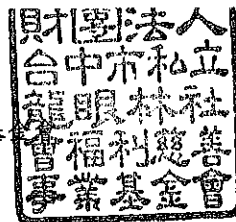 財團法人
台中市私立
龍眼林社
會福利慈善
事業基金會